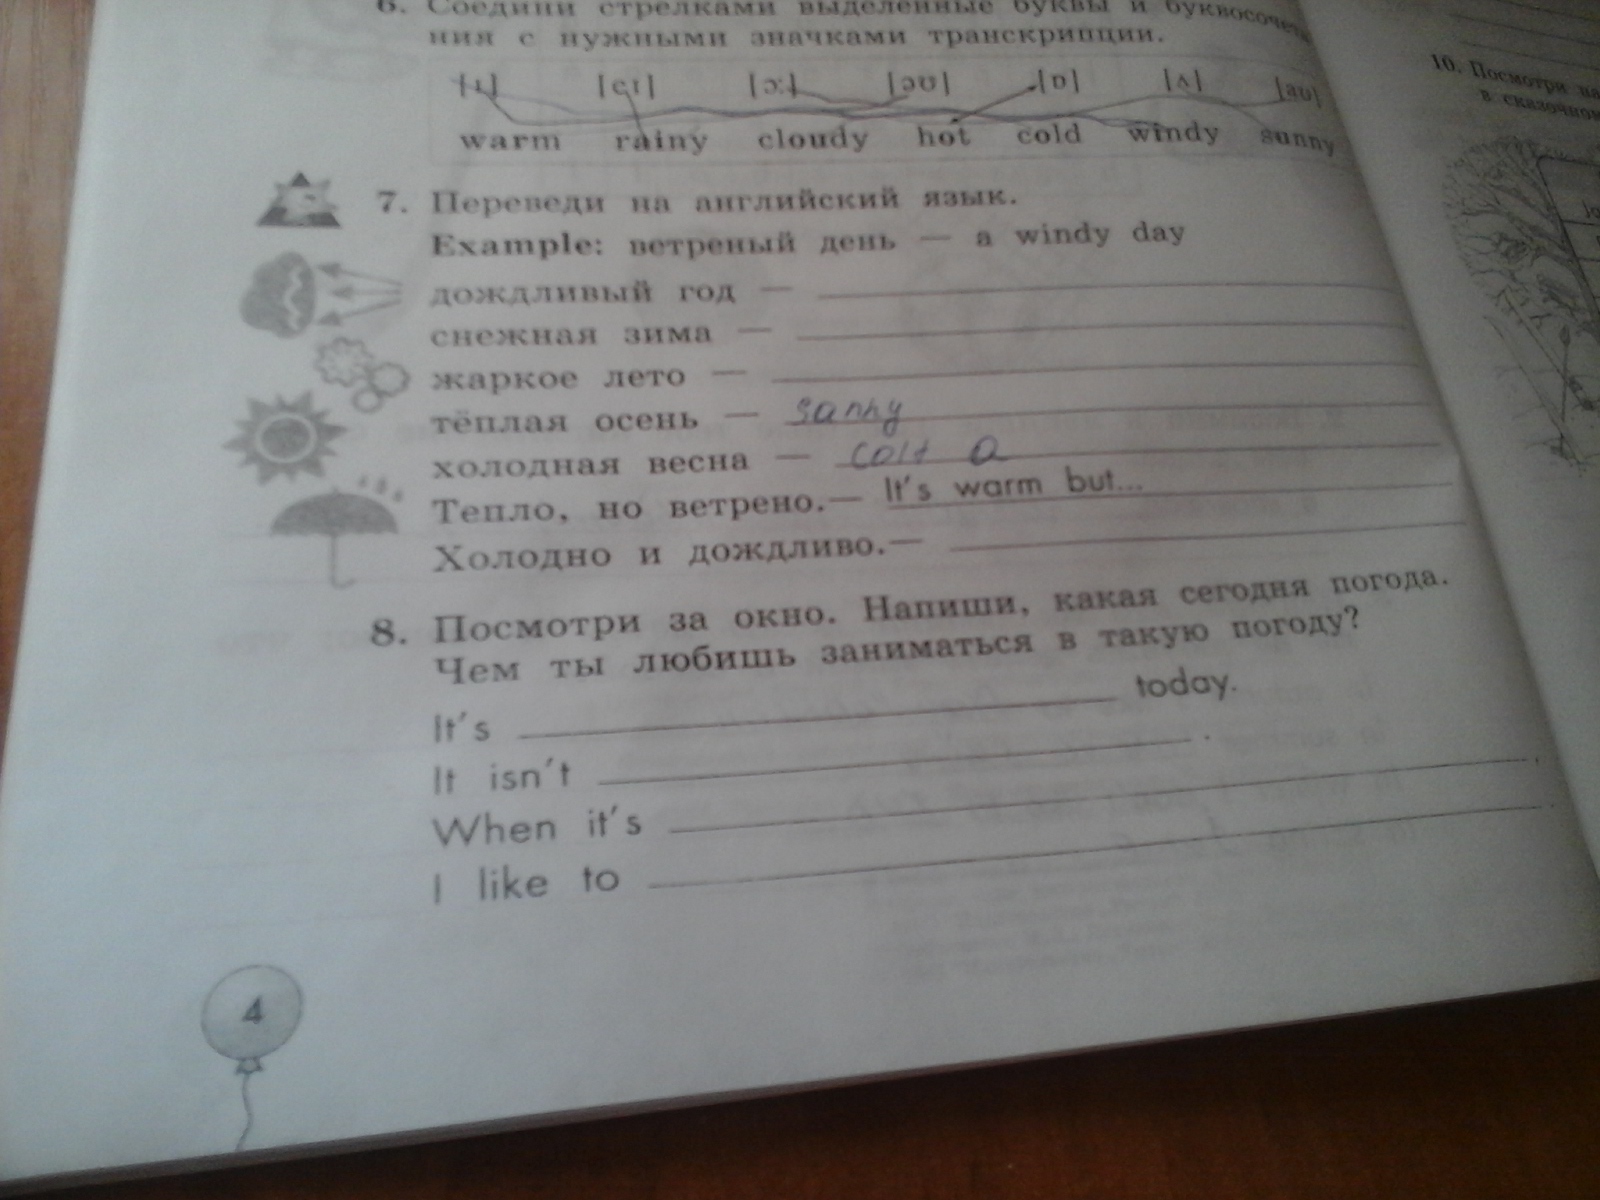 6. Соедини стрелками выделенные буквы и буквосочета
ния с нужными значками транскрипции.
[ɪ] [eɪ] [ɔ:] [əʊ] [ɒ] [ʌ] [aʊ]
warm rainy cloudy hot cold windy sunny
7. Переведи на английский язык.
Example: ветреный день — a windy day
дождливый год —
снежная зима —
жаркое лето —
тёплая осень — sanny
холодная весна — colt a
Тепло, но ветрено.— It's warm but...
Холодно и дождливо.—
8. Посмотри за окно. Напиши, какая сегодня погода.
Чем ты любишь заниматься в такую погоду?
It's today.
It isn't .
When it's ,
I like to .
4
10. Посмотри на
в сказочном